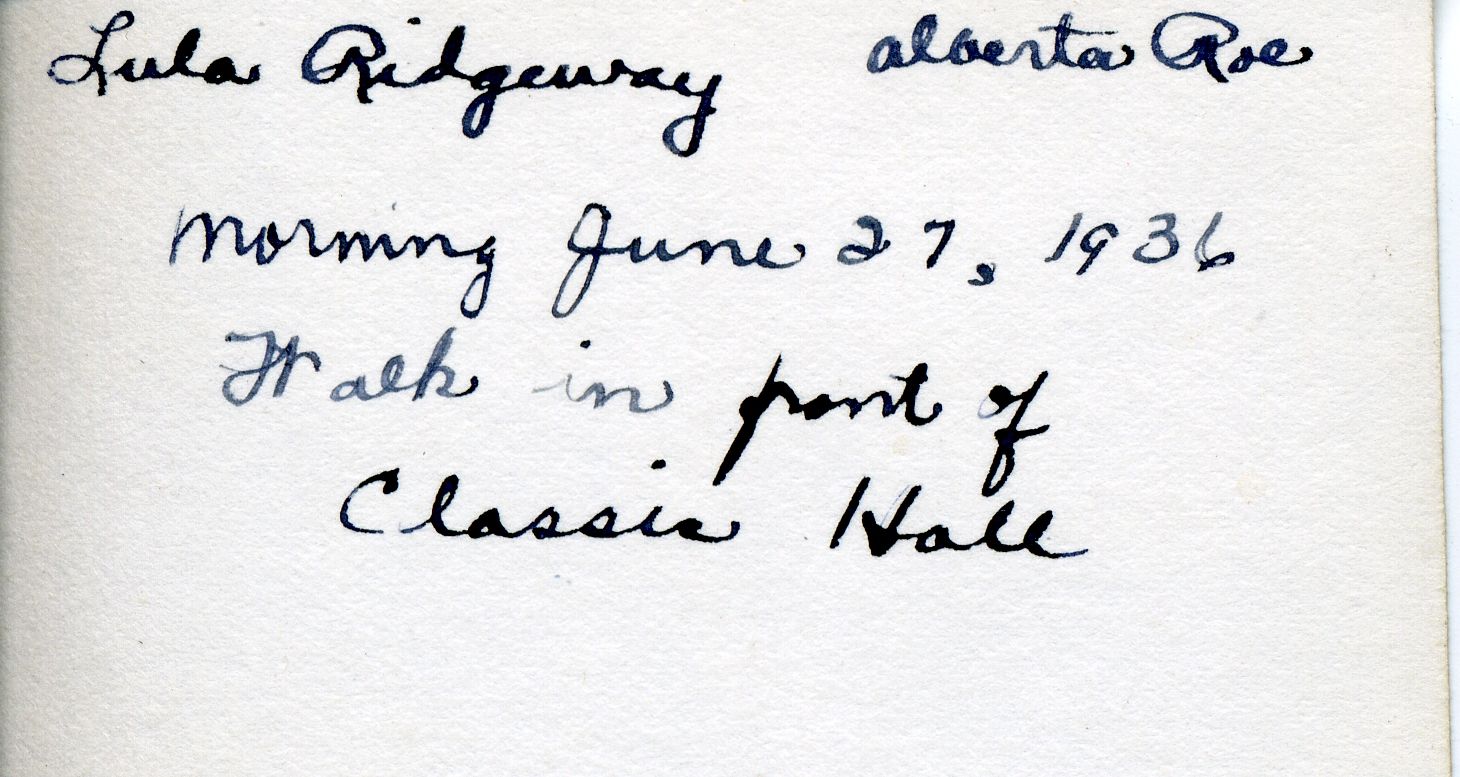 Lula Ridgeway Alberta Roe
Morning June 27, 1936
Walk in front of
Classic Hall